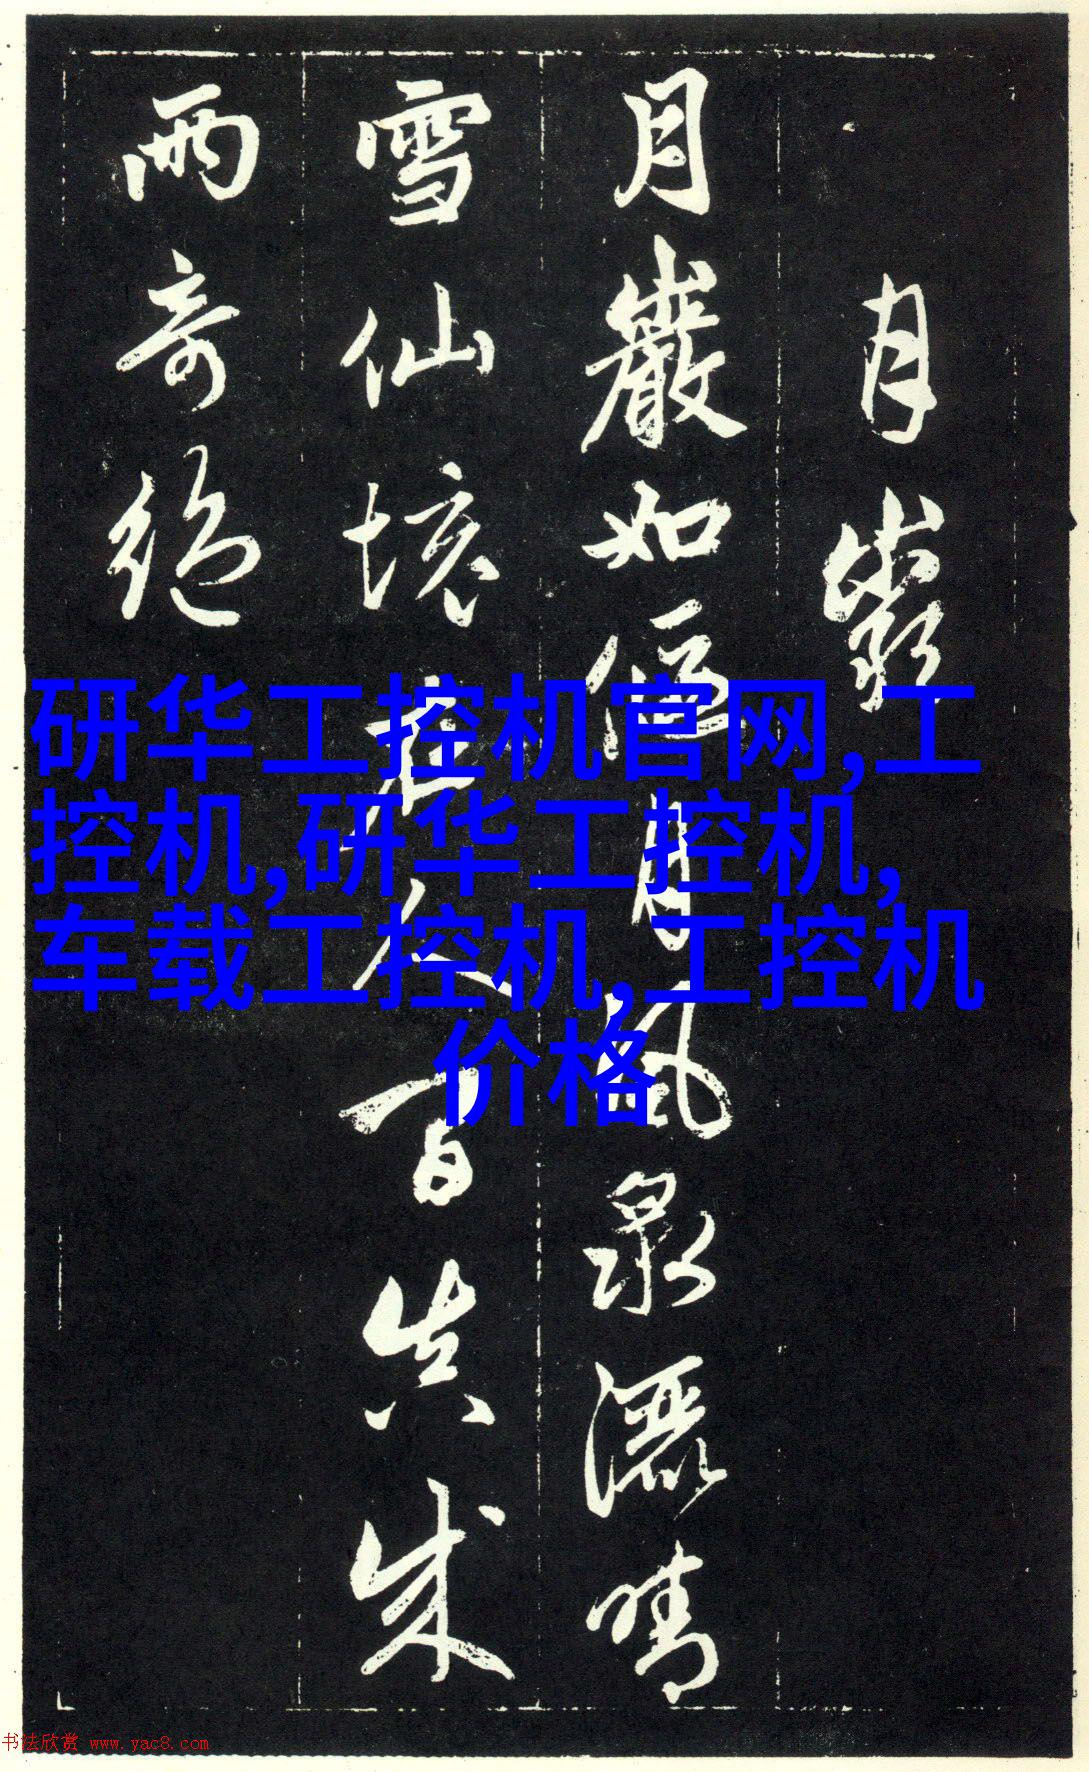 月巖
月巖如偃月風泉灑晴
雪仙境在人言真成
兩奇絕
研华工控机官网,工
控机,研华工控机,
车载工控机,工控机
价格
书法欣赏 www.yac8.com